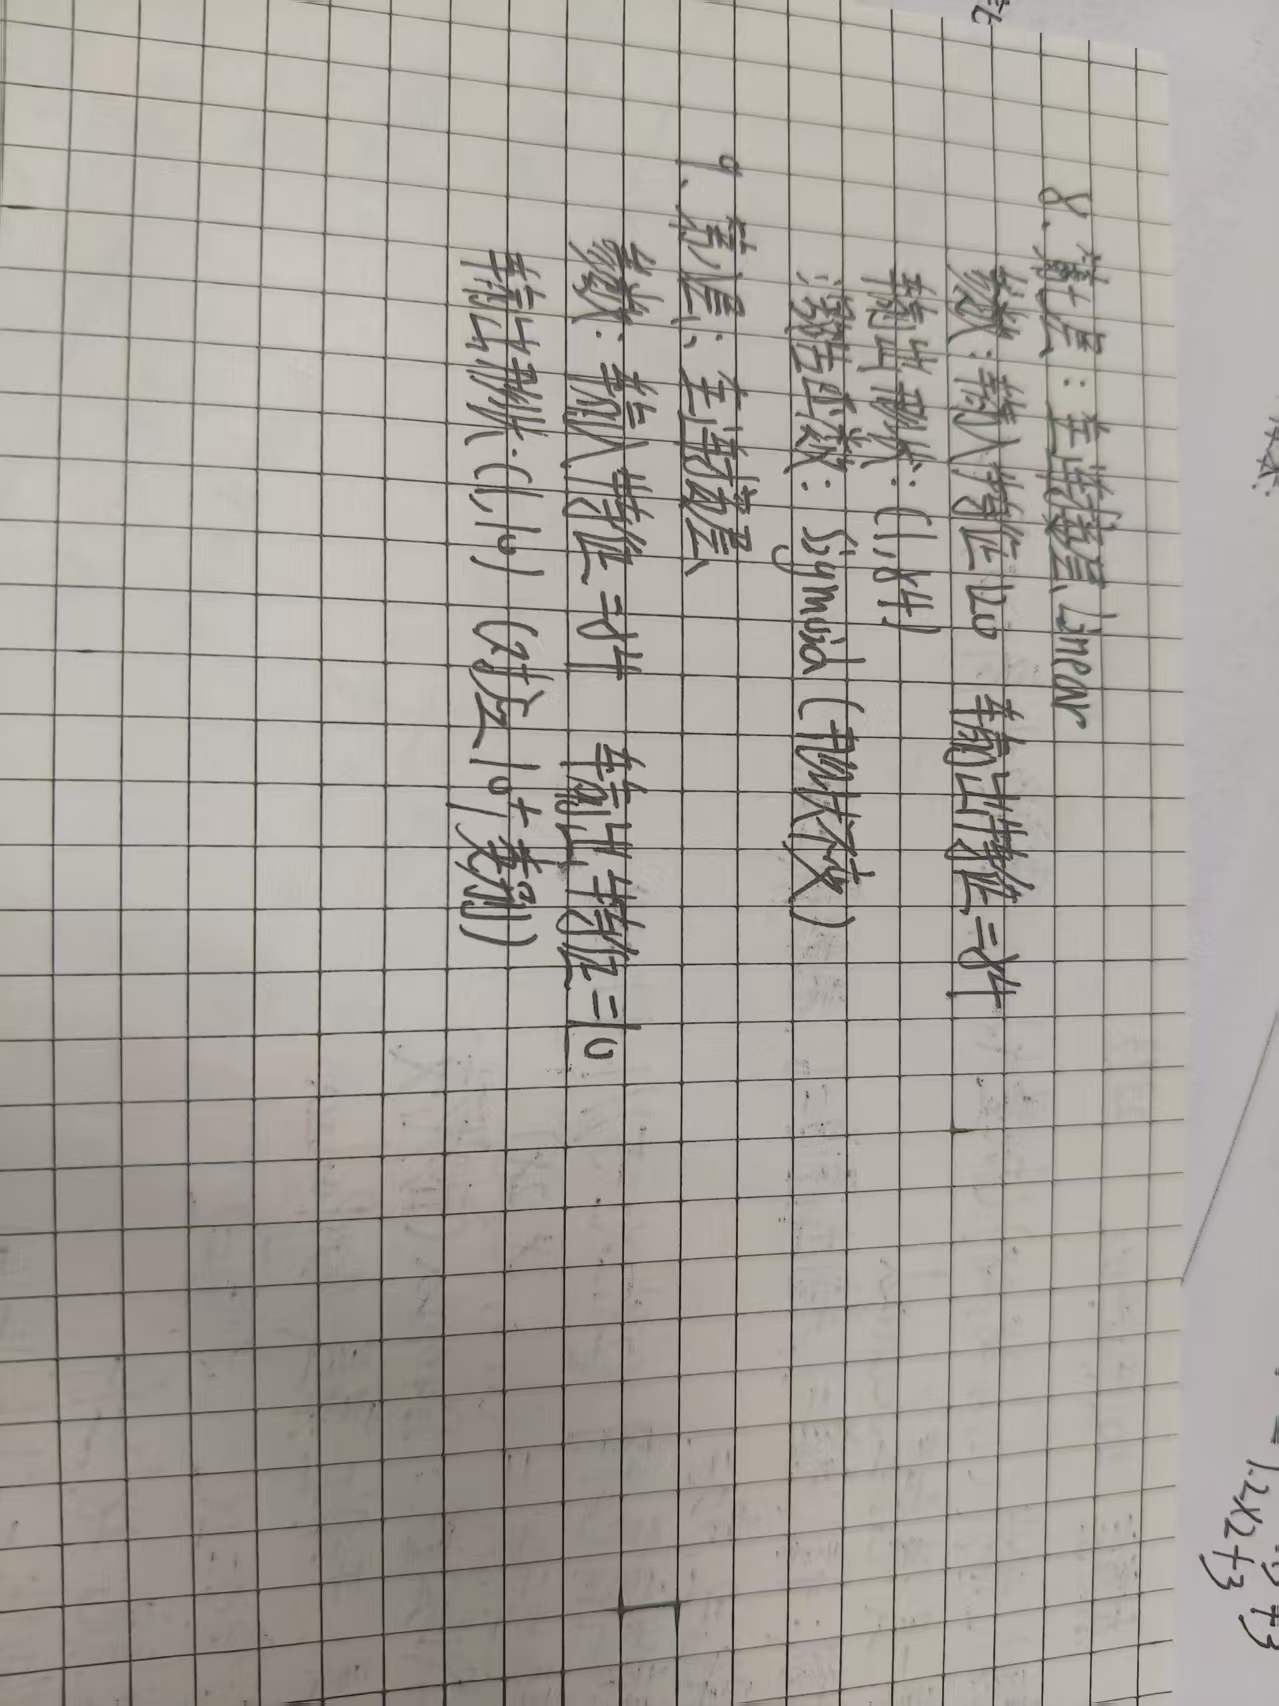 8. 第七层: 全连接层 Linear
参数: 输入特征120 输出特征=84
输出形状: (1,84)
激活函数: Sigmoid (形状不变)
9. 第八层: 全连接层
参数: 输入特征=84 输出特征=10
输出形状: (1,10) (对应10个类别)
=1.2X2+3